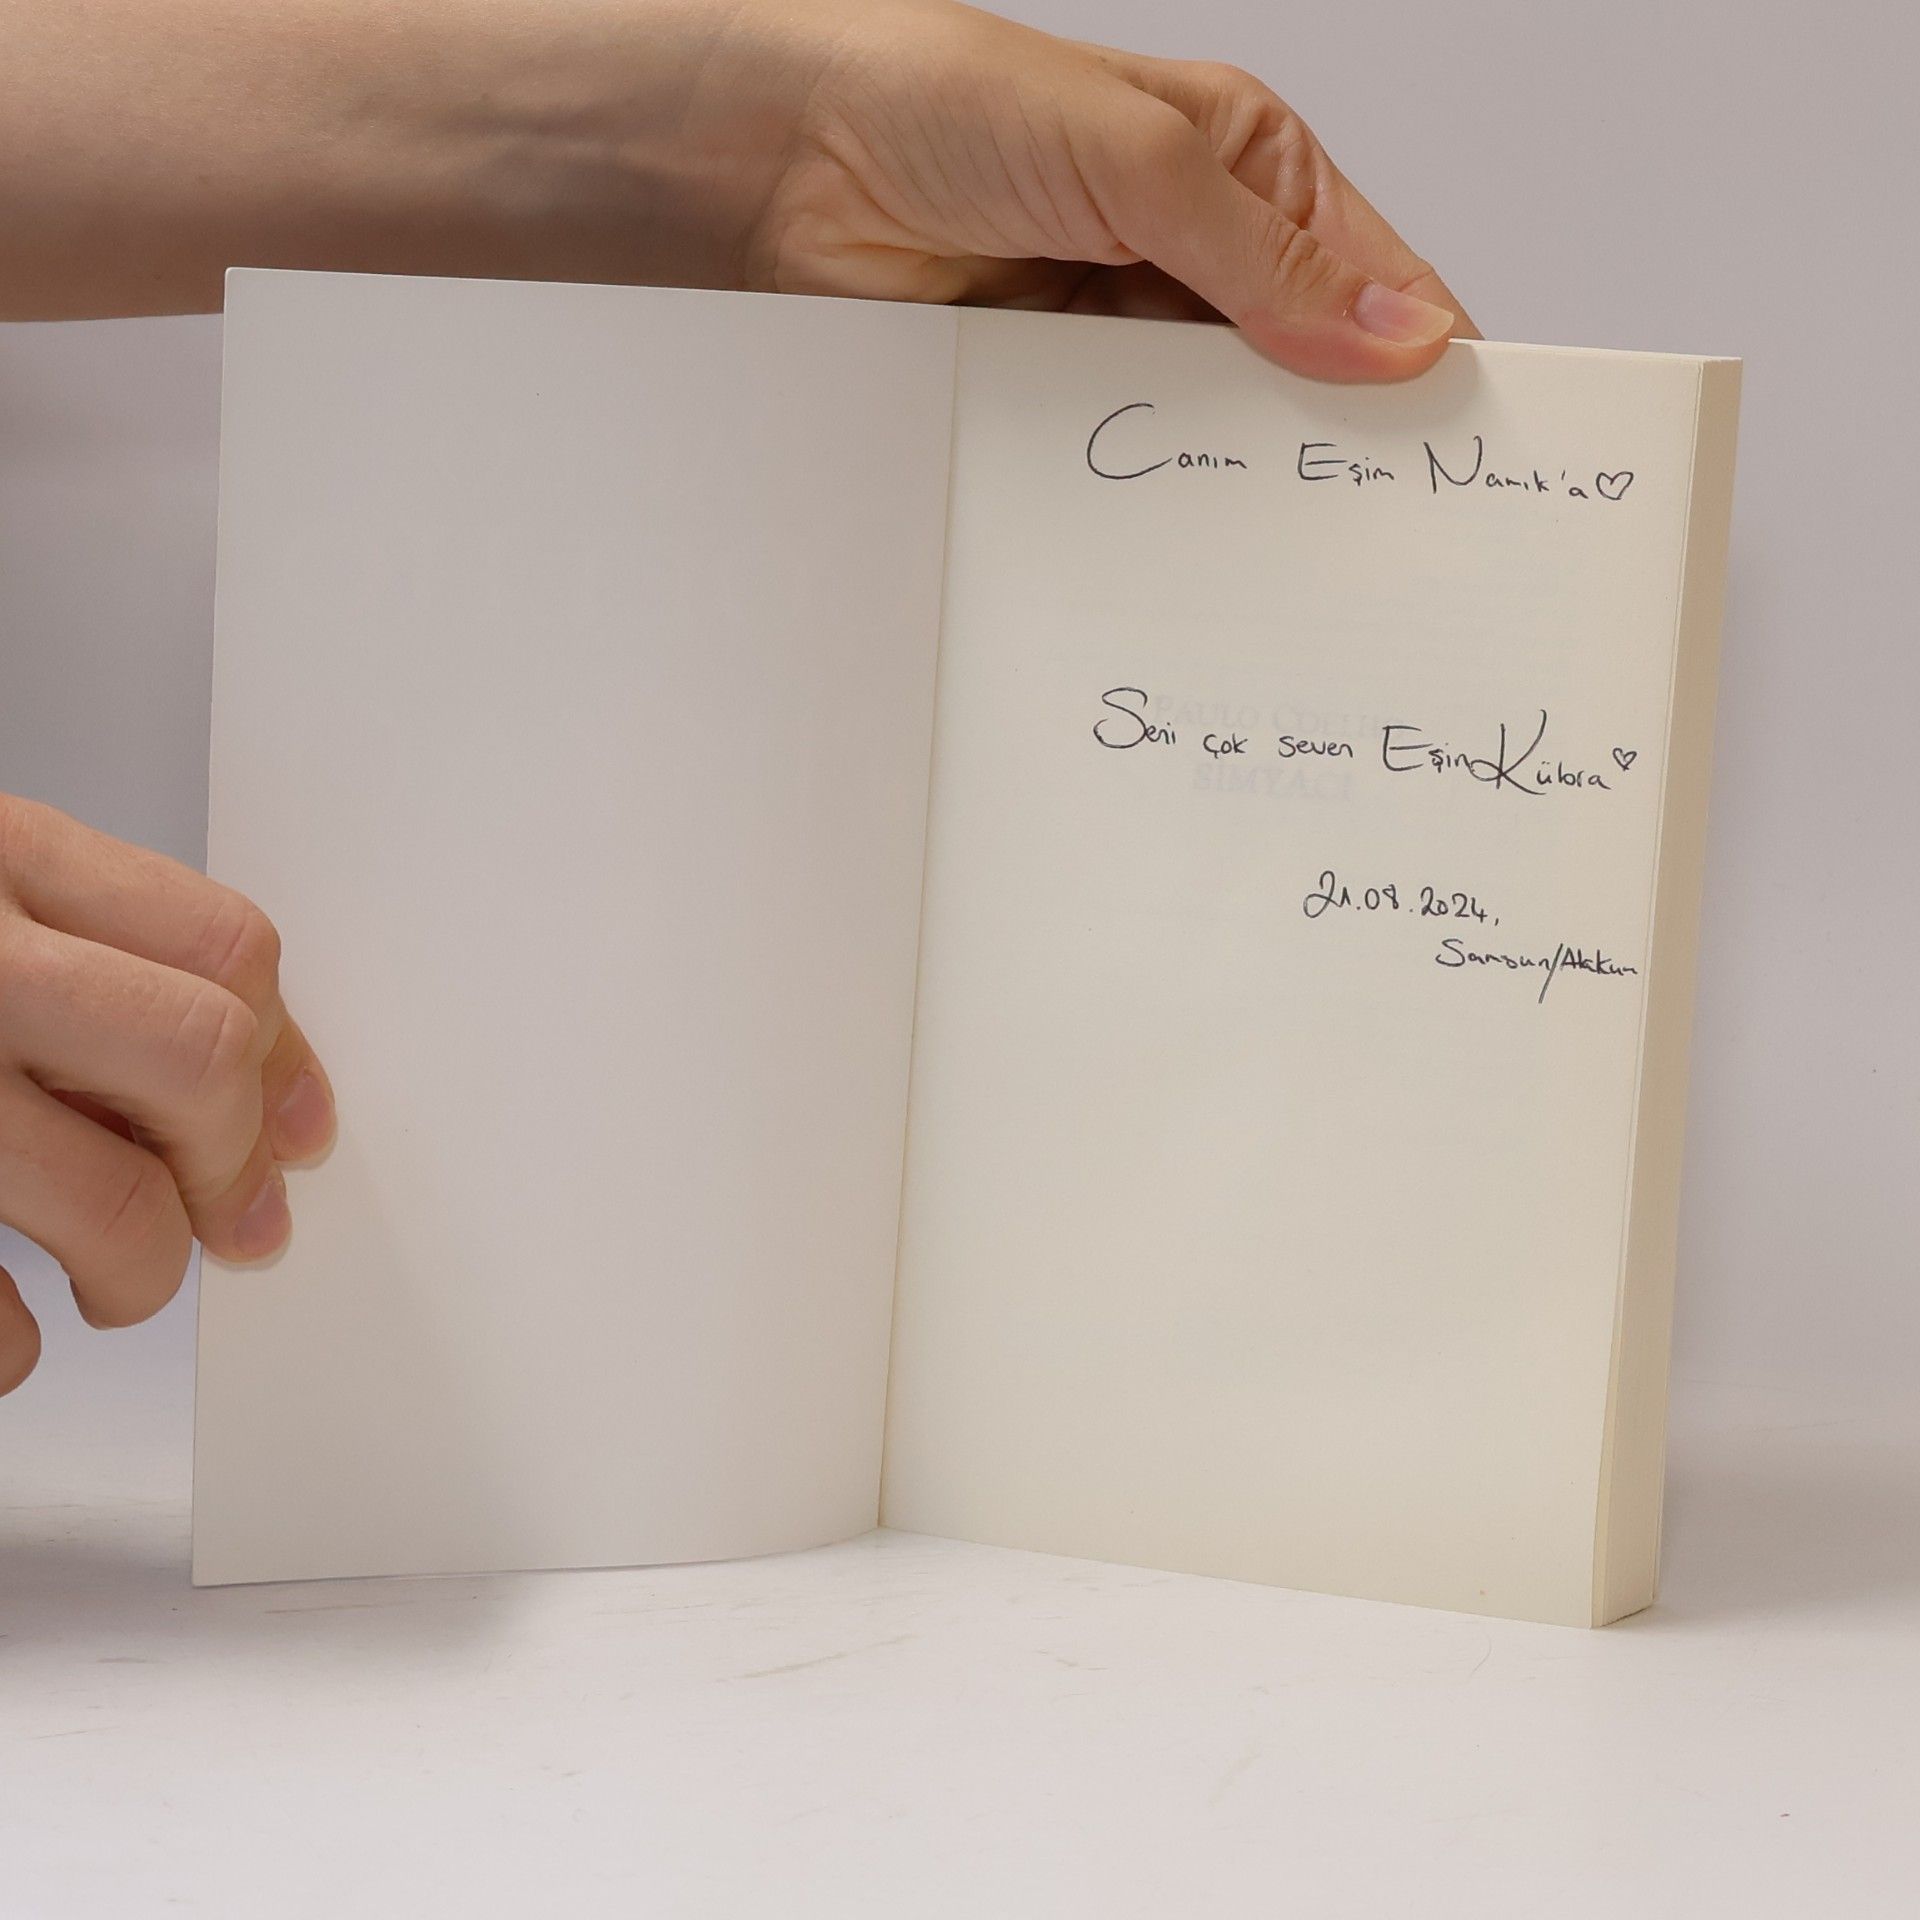 Canım Eşim Namık'a ♡
PAULO COELHO
Seni çok seven Eşin Kübra ♡
SİMYACI
21.08.2024,
Samsun/Atakum